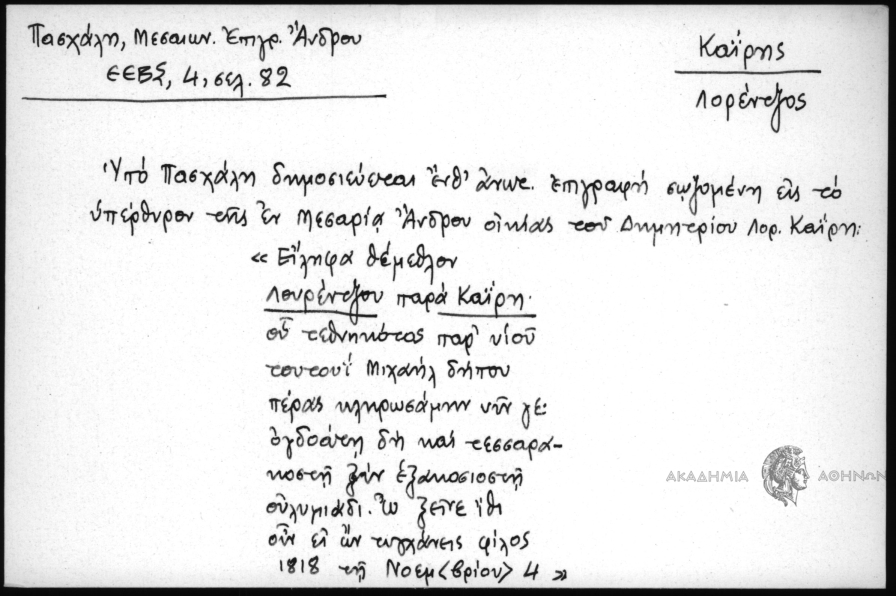 Πασχάλη, Μεσαιων. Ἐπιγρ. Ἄνδρου
ΕΕΒΣ, 4, σελ. 82
Καΐρης
Λορέντζος
Ὑπό Πασχάλη δημοσιεύεται ἔνθ' ἄνωτ. ἐπιγραφή σῳζομένη εἰς τό
ὑπέρθυρον τῆς ἐν Μεσαρίᾳ Ἄνδρου οἰκίας τοῦ Δημητρίου Λορ. Καΐρη:
« Εἴληφα θέμεθλον
Λουρέντζου παρά Καΐρη·
οὗ τεθνηκότος παρ' υἱοῦ
τουτουΐ Μιχαήλ δήπου
πέρας κληρωσάμην νῦν γε:
ὀγδοάτῃ δή καί τεσσαρα-
κοστῇ ξύν ἑξακοσιοστῇ
οὐλυμιάδι. Ὦ ξεῖνε ἴθι
οὖν εἰ ὤν τυγχάνεις φίλος
1818 τῇ Νοεμ<βρίου> 4 »
ΑΚΑΔΗΜΙΑ ΑΘΗΝΩΝ